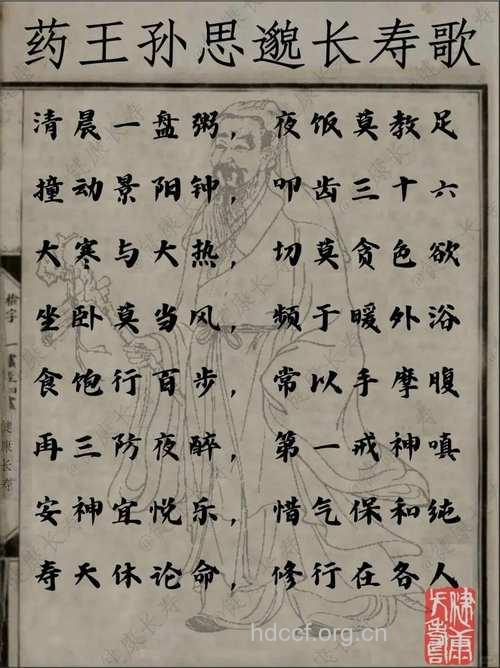 药王孙思邈长寿歌
清晨一盘粥，夜饭莫教足
撞动景阳钟，叩齿三十六
大寒与大热，切莫贪色欲
坐卧莫当风，频于暖外浴
食饱行百步，常以手摩腹
再三防夜醉，第一戒神嗔
安神宜悦乐，惜气保和纯
寿夭休论命，修行在各人
健康长寿
hdccf.org.cn